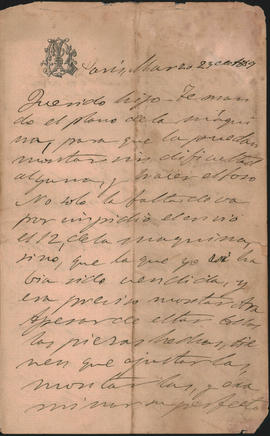 Paris, Marzo 23 de 1889
Querido hijo: Te man
do el plano de la máqui
na, para que la puedan
montar sin dificultad
alguna, y hacer el foso
No solo la falta de
por impidió el envio
el 12, de la maquina,
sino, que la que yo vi ha
bia sido vendida, y
era preciso montar otra
Apesar de estar todas
las piezas hechas, tie
nen que ajustarlas,
montarlas, y exa
minar su perfecto